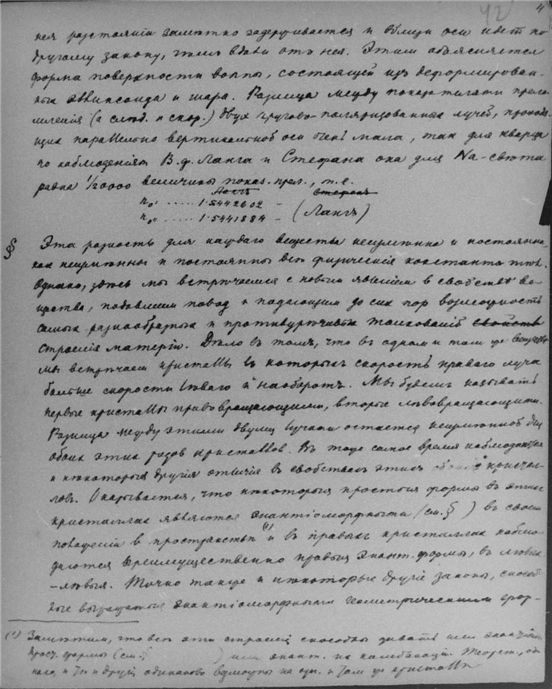 42 4
нея разстоянiи замѣтно задерживается и вблизи оси идет по
другому закону, чѣмъ вдали отъ нея. Этимъ объясняется
форма поверхности волны, состоящей изъ деформирован-
ныхъ эллипсоида и шара. Разница между показателями прело-
мленiя (а слѣд. и скор.) двухъ кругово-поляризованныхъ лучей, проходя-
щихъ параллельно вертикальной оси очень мала, такъ для кварца
по наблюденiямъ В. ф. Ланга и Стефана она для Na-свѣта
равна 1/20000 величины показ. прел., т. е.
n₀ ..... 1.5442602 –
n₀ ..... 1.5441884 – (Лангъ)
§ Эта разность для каждаго вещества неизмѣнна и постоянна,
какъ неизмѣнны и постоянны всѣ физическiя константы
Однако, здѣсь мы встрѣчаемся с новымъ явленiемъ в свойствѣ ве-
щества, подавшимъ повод и подающимъ до сих пор возможность
самыхъ разнообразных и противурѣчивыхъ толкованiй свойств
строенiя матерiи. Дѣло в томъ, что в одномъ и том же веществѣ
мы встрѣчаем кристаллы в которыхъ скорость праваго луча
больше скорости лѣваго и наоборотъ. Мы будемъ называть
первые кристаллы правовращающими, вторые лѣвовращающими.
Разница между этими двумя лучами остается неизмѣнной для
обоих этих родов кристаллов. Въ тоже самое время наблюдаются
и нѣкоторыя другiя отличiя в свойствах этихъ кристал-
ловъ. Оказывается, что нѣкоторыя простыя формы в этихъ
кристаллах являются энантiоморфными (см. § ) в своем
поведенiи в пространствѣ (1) и въ правыхъ кристаллах наблю-
даются преимущественно правыя энант. формы, въ лѣвых
– лѣвыя. Точно также и нѣкоторые другiе законы,
выражаются энантiоморфными геометрическими
(1) Замѣтимъ, что всѣ эти
прост. формы (см. § ) или энант.
и тѣ и другiя одинаково возможны на одн. и том же кристаллѣ